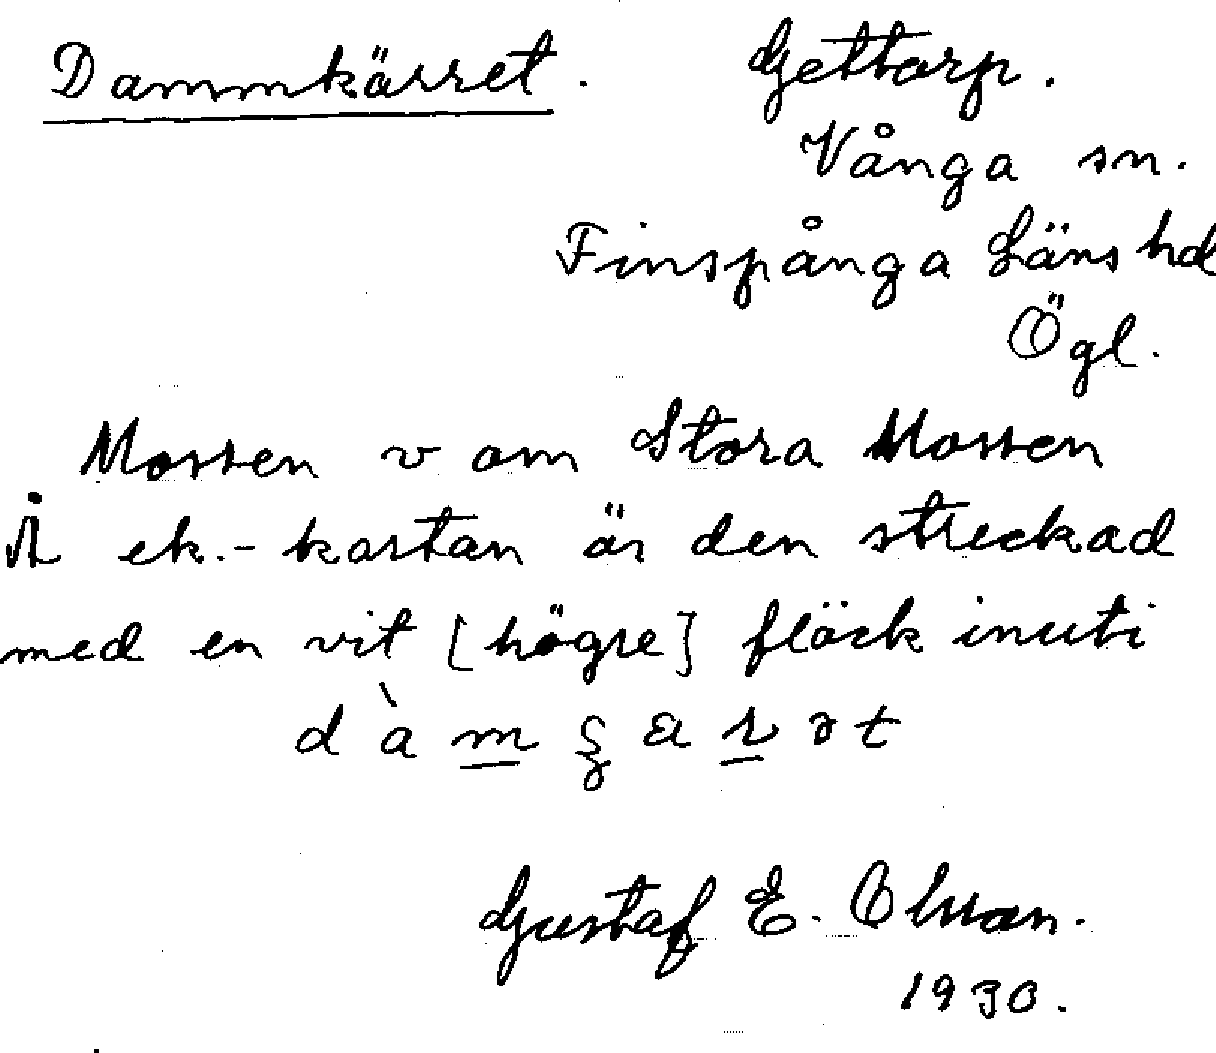 Dammkärret. Gettorp.
Vånga sn.
Finspånga Läns hd
Ögl.
Mossen v om Stora Mossen
Å ek.-kartan är den streckad
med en vit [högre] fläck inuti
dàm̲ʂar̲ət
Gustaf E. Ohman.
1930.